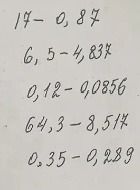 17- 0,87
6,5-4,837
0,12-0,0856
64,3-8,517
0,35-0,289